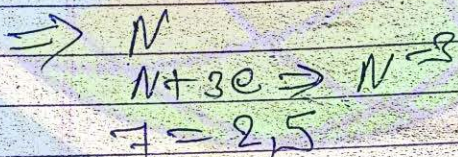 ⇒ N
N + 3e ⇒ N⁻³
7 = 2,5